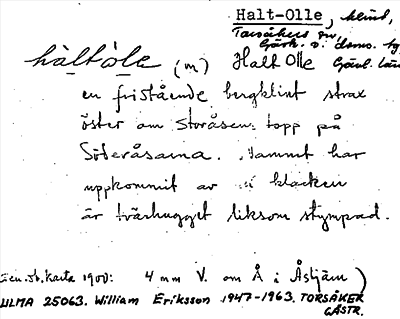 Halt-Olle, klint,
Torsåkers sn,
Gästr. ö. doms. hg
hàltòle (m) Halt Olle Gävl. län
en fristående bergklint strax
öster om Storåsens topp på
Söderåsarna. Namnet har
uppkommit av att klacken
är tvärhugget liksom stympad.
Gen.st.karta 1900: 4 mm V. om Å i Åstjärn)
ULMA 25063. William Eriksson 1947-1963. TORSÅKER
GÄSTR.